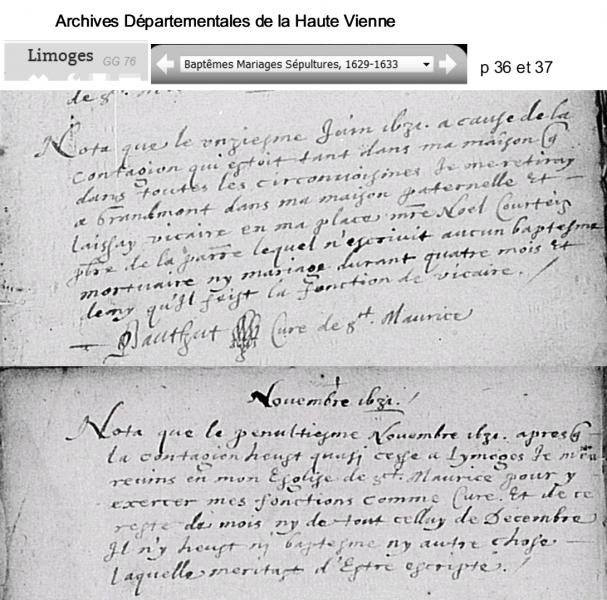 Archives Départementales de la Haute Vienne
Limoges GG 76
Baptêmes Mariages Sépultures, 1629-1633
p 36 et 37
de St.
Nota que le unziesme Juin 1631. a cause de la
contagion qui estoit tant dans ma maison q
dans toutes les circonvoisines Je me retiray
a Grandmont dans ma maison paternelle et
laissay vicaire en ma place mre Noel Courteis
pbre de la parre lequel n'escrivit aucun baptesme
mortuaire ny mariage durant quatre mois et
demy qu'il feist la fonction de vicaire.
Bauthut Cure de St. Maurice
Novembre 1631.
Nota que le penultiesme Novembre 1631. apres q
la contagion heust quasi cesse a Lymoges Je m'en
revins en mon Esglise de St. Maurice pour y
exercer mes fonctions comme Cure. Et de ce
reste de mois ny de tout celluy de Decembre
Il n'y heust ni baptesme ny autre chose
laquelle meritast d'Estre escripte.